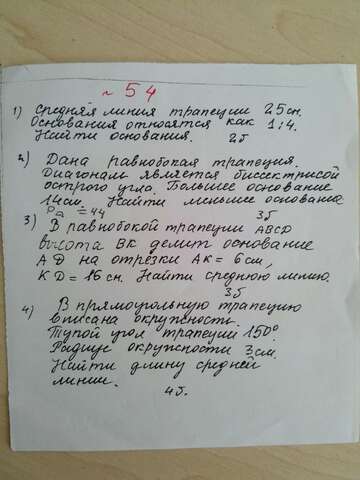 № 54
1) Средняя линия трапеции 25 см.
Основания относятся как 1:4.
Найти основания. 2б
2) Дана равнобокая трапеция.
Диагональ является биссектрисой
острого угла. Большее основание
14 см. Найти меньшее основание
Pа = 44 3б
3) В равнобокой трапеции ABCD
высота BK делит основание
AD на отрезки AK = 6 см,
KD = 16 см. Найти среднюю линию.
3б
4) В прямоугольную трапецию
вписана окружность.
Тупой угол трапеции 150°.
Радиус окружности 3 см.
Найти длину средней
линии.
4б.